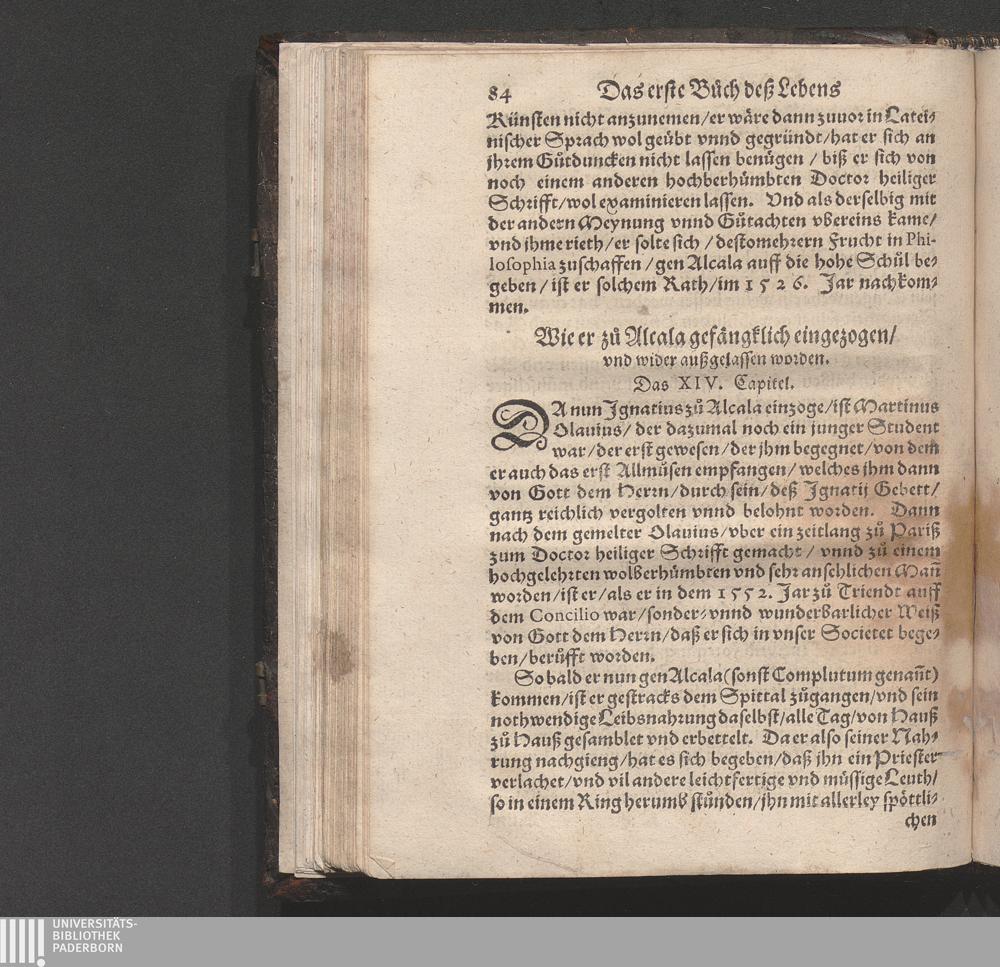 84 Das erste Bůch deß Lebens
Künsten nicht anzunemen/er wäre dann zuuor in Latei-
nischer Sprach wol geübt vnnd gegründt/hat er sich an
jhrem Gůtduncken nicht lassen benügen / biß er sich von
noch einem anderen hochberhümbten Doctor heiliger
Schrifft/wol examinieren lassen. Vnd als derselbig mit
der andern Meynung vnnd Gůtachten vbereins kame/
vnd jhme rieth/er solte sich / destomehrern Frucht in Phi-
losophia zuschaffen / gen Alcala auff die hohe Schůl be-
geben / ist er solchem Rath/im 1526. Jar nachkom-
men.
Wie er zů Alcala gefängklich eingezogen/
vnd wider außgelassen worden.
Das XIV. Capitel.
DA nun Ignatius zů Alcala einzoge/ist Martinus
Olauius/ der dazumal noch ein junger Student
war/der erst gewesen/der jhm begegnet/von dem
er auch das erst Allmůsen empfangen/welches jhm dann
von Gott dem Herrn/durch sein/deß Ignatij Gebett/
gantz reichlich vergolten vnnd belohnt worden. Dann
nach dem gemelter Olauius/vber ein zeitlang zů Pariß
zum Doctor heiliger Schrifft gemacht / vnnd zů einem
hochgelehrten wolberhümbten vnd sehr ansehlichen Mañ
worden/ist er/als er in dem 1552. Jar zů Triendt auff
dem Concilio war/sonder-vnnd wunderbarlicher Weiß
von Gott dem Herrn/daß er sich in vnser Societet bege-
ben/berůfft worden.
So bald er nun gen Alcala (sonst Complutum genañt)
kommen/ist er gestracks dem Spittal zůgangen/vnd sein
nothwendige Leibsnahrung daselbst/alle Tag/von Hauß
zů Hauß gesamblet vnd erbettelt. Da er also seiner Nah-
rung nachgieng/hat es sich begeben/daß jhn ein Priester
verlachet/vnd vil andere leichtfertige vnd müssige Leuth/
so in einem Ring herumb stůnden/jhn mit allerley spöttli-
chen
UNIVERSITÄTS-
BIBLIOTHEK
PADERBORN